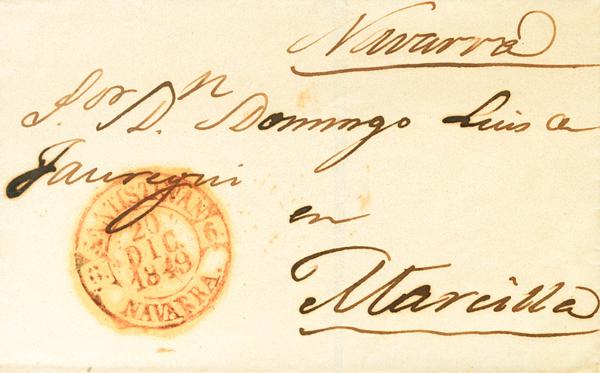 Navarra
S.or D.n Domingo Luis de
Jauregui
en
Marcilla
SANTISTEVAN
20
DIC
1849
NAVARRA.